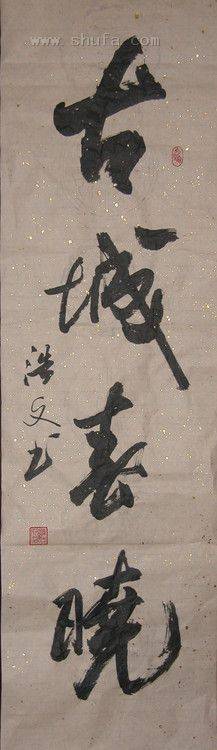 www.shufa.com
古城春晓
浩文书